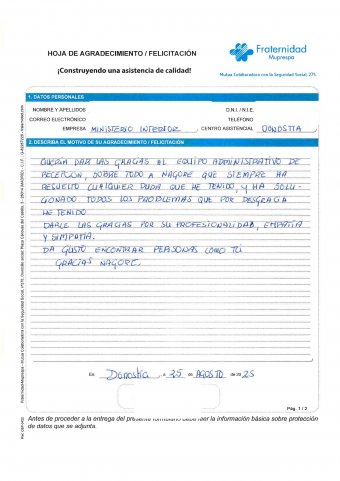 HOJA DE AGRADECIMIENTO / FELICITACIÓN
¡Construyendo una asistencia de calidad!
Fraternidad
Muprespa
Mutua Colaboradora con la Seguridad Social, 275
1. DATOS PERSONALES
NOMBRE Y APELLIDOS
D.N.I. / N.I.E.
CORREO ELECTRÓNICO
TELÉFONO
EMPRESA MINISTERIO INTERIOR
CENTRO ASISTENCIAL DONOSTIA
2. DESCRIBA EL MOTIVO DE SU AGRADECIMIENTO / FELICITACIÓN
QUERÍA DAR LAS GRACIAS AL EQUIPO ADMINISTRATIVO DE
RECEPCION, SOBRE TODO A NAGORE QUE SIEMPRE HA
RESUELTO CUALQUIER DUDA QUE HE TENIDO, Y HA SOLU-
CIONADO TODOS LOS PROBLEMAS QUE POR DESGRACIA
HE TENIDO
DARLE LAS GRACIAS POR SU PROFESIONALIDAD, EMPATÍA
Y SIMPATIA.
DA GUSTO ENCONTRAR PERSONAS COMO TÚ
GRACIAS NAGORE.
En Donostia a 25 de AGOSTO de 2025
Pág. 1 / 2
Antes de proceder a la entrega del presente formulario debe leer la información básica sobre protección
de datos que se adjunta.